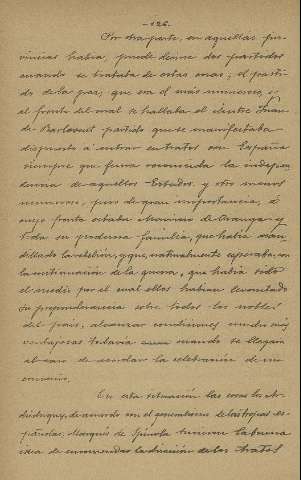 -126-
Por otra parte, en aquellas pro-
vincias habia, puede decirse dos partidos
cuando se trataba de estas cosas; el parti-
do de la paz, que era el más numeroso, y
al frente del cual se hallaba el ilustre Juan
de Barlevent partido que se manifestaba
dispuesto á entrar en tratos con España
siempre que fuera reconocida la indepen
dencia de aquellos Estados, y otro menos
numeroso, pero de gran importancia, á
cuyo frente estaba Mauricio de Orange y
toda su poderosa familia, que había acau
dillado la rebelión, y que, naturalmente esperaba, con
la continuación de la guerra, que había sido
el medio por el cual ellos habían levantado
su preponderancia sobre todos los nobles
del país, alcanzar condiciones mucho más
ventajosas todavía cuando se llegara
al caso de acordar la celebración de un
convenio.
En esta situación las cosas los Ar-
chiduques, de acuerdo con el generalísimo de las tropas es-
pañolas, Marqués de Spínola tuvieron la buena
idea de encomendar la dirección de los tratos